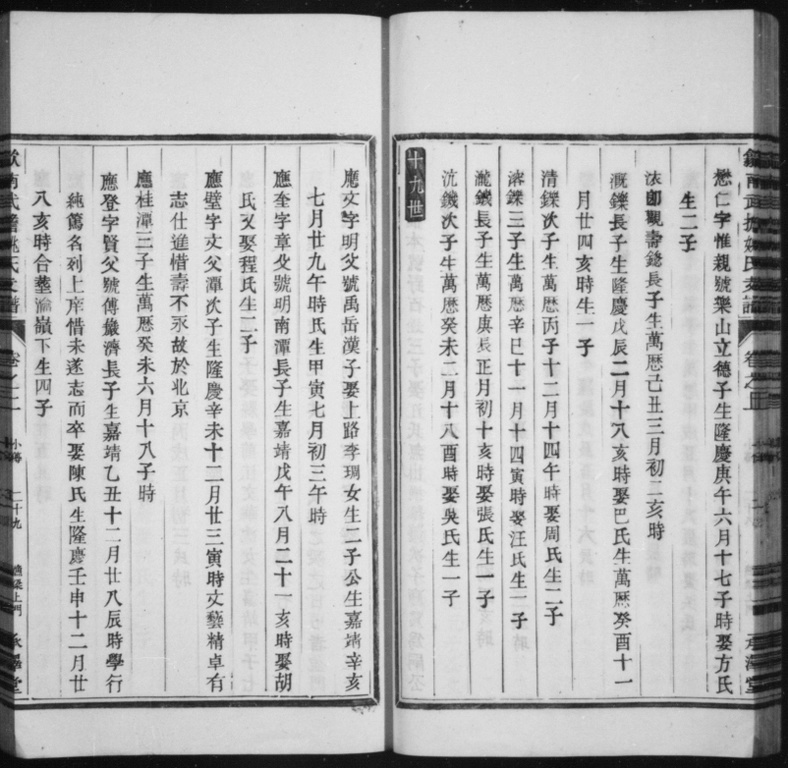 懋仁字惟親號樂山立德子生隆慶庚午六月十七子時娶方氏
生二子
十九世
觀壽鎴長子生萬曆己丑三月初二亥時
溉鑠長子生隆慶戊辰二月十八亥時娶巴氏生萬曆癸酉十一
月廿四亥時生一子
清鑠次子生萬曆丙子十二月十四午時娶周氏生二子
溶鑠三子生萬曆辛巳十一月十四寅時娶汪氏生一子
鐖長子生萬曆庚辰正月初十亥時娶張氏生一子
沆鐖次子生萬曆癸未二月十八酉時娶吳氏生一子
應文字明父號禹岳漢子娶上路李琱女生二子公生嘉靖辛亥
七月廿九午時氏生甲寅七月初三午時
應奎字章父號明南潭長子生嘉靖戊午八月二十一亥時娶胡
氏又娶程氏生二子
應壁字文父潭次子生隆慶辛未十二月廿三寅時文藝精卓有
志仕進惜壽不永故於北京
應桂潭三子生萬曆癸未六月十八子時
應登字賢父號傅巖濟長子生嘉靖乙丑十二月廿八辰時學行
純篤名列上庠惜未遂志而卒娶陳氏生隆慶壬申十二月廿
八亥時合葬渝嶺下生四子
南 姚氏支譜
卷之二
二十九
承澤堂